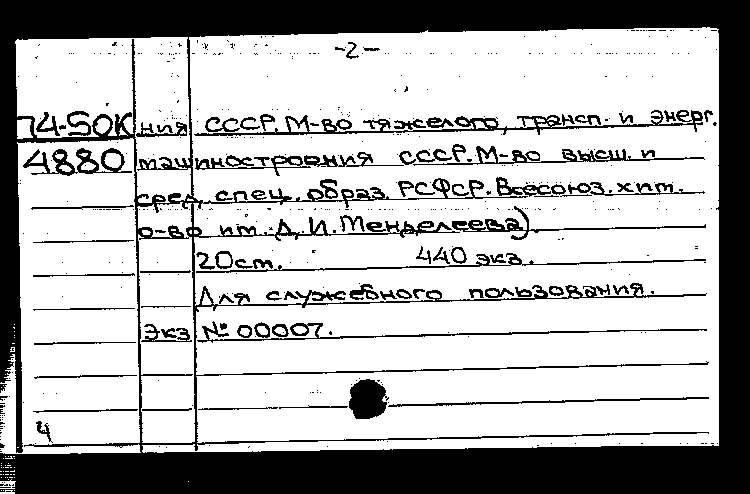 -2-
74-50К ния СССР. М-во тяжелого, трансп. и энерг.
4880 машиностроения СССР. М-во высш. и
сред. спец. образ. РСФСР. Всесоюз. хим.
о-во им. Д. И. Менделеева).
20см. 440 экз.
Для служебного пользования.
Экз № 00007.
4